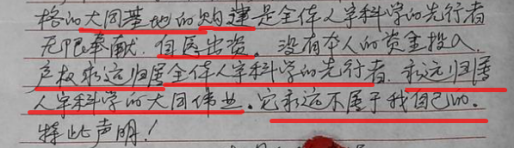 格的大同基地的购建是全体人宇科学的先行者
无限奉献、自愿出资。没有本人的资金投入,
产权永远归属全体人宇科学的先行者,永远归属
人宇科学的大同伟业。它永远不属于我自己的。
特此声明!